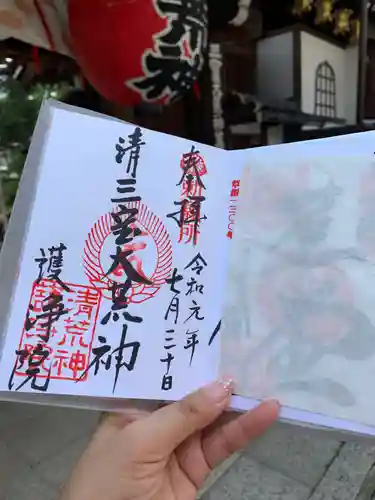 奉拝
令和元年
七月三十日
清三宝大荒神
護浄院
清荒神
護浄院
荒神